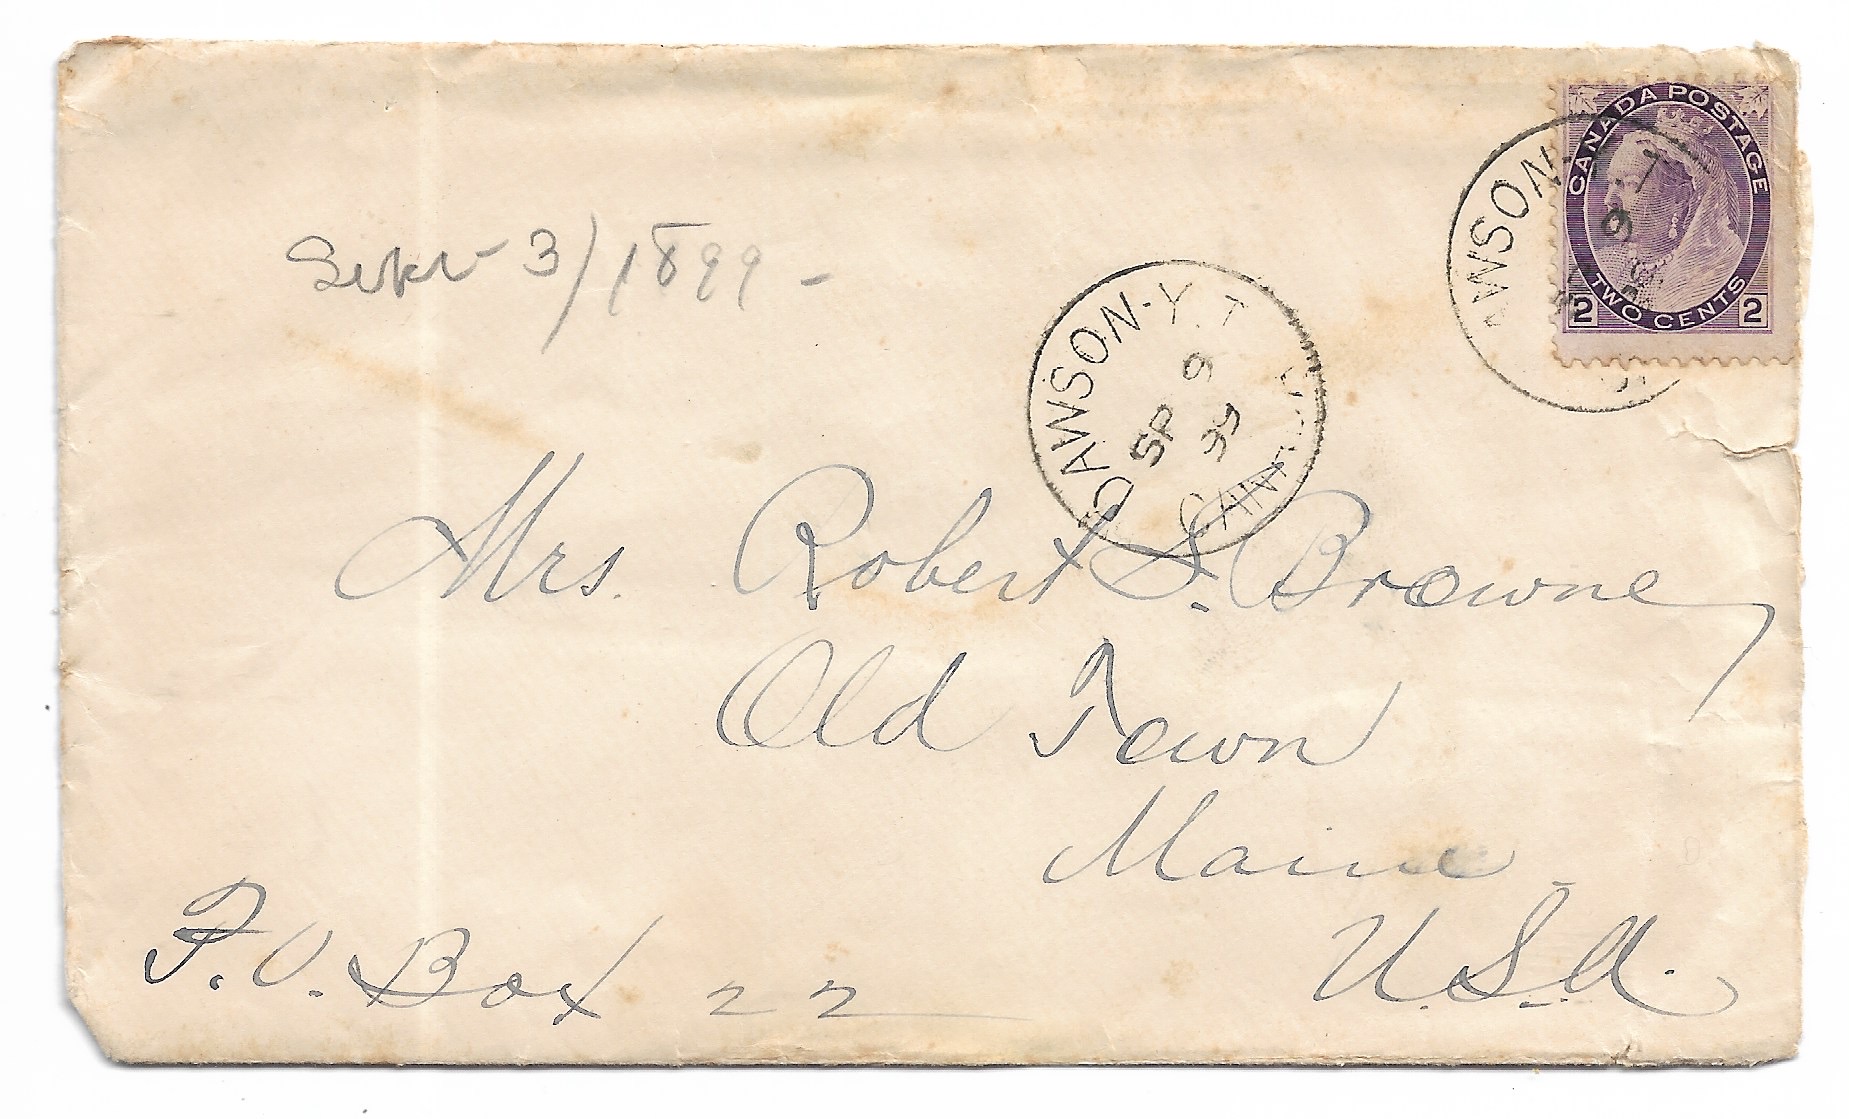 CANADA POSTAGE
2 TWO CENTS 2
AWSON-Y.T
9
Sept 3/1899-
DAWSON-Y.T
9
SP 99
CANADA
Mrs. Robert S. Browne,
Old Town
Maine
U.S.A.
P.O. Box 22